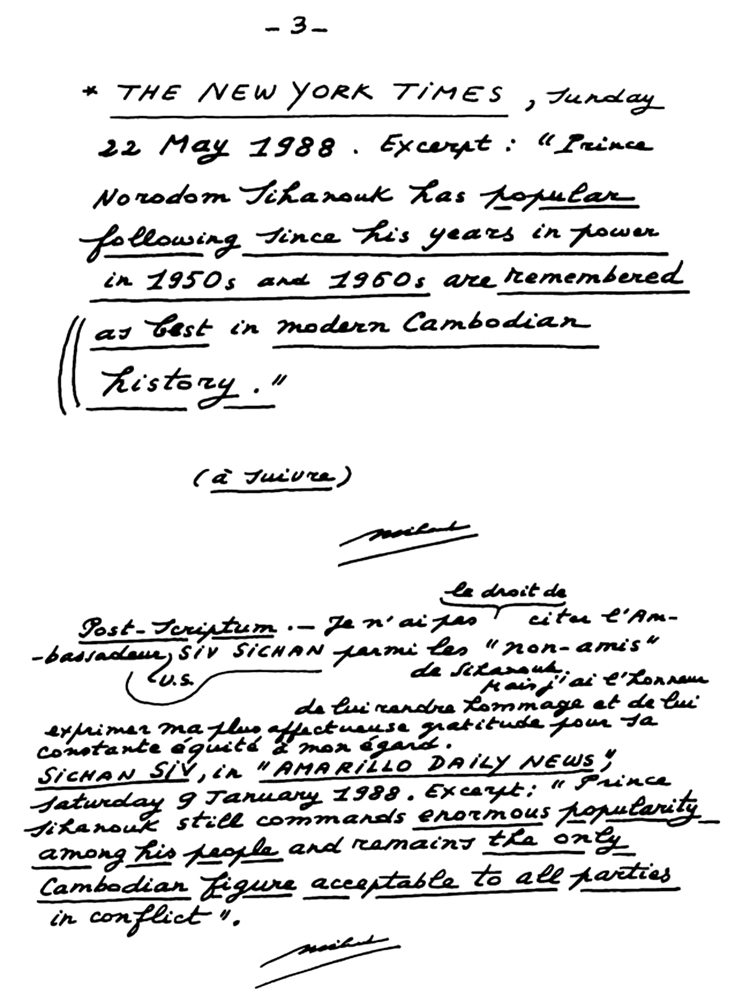 - 3 -
* THE NEW YORK TIMES, Sunday
22 May 1988. Excerpt : "Prince
Norodom Sihanouk has popular
following since his years in power
in 1950s and 1960s are remembered
as best in modern Cambodian
history."
(à suivre)
le droit de
Post-Scriptum.- Je n'ai pas citer l'Am-
-bassadeur, SIV SICHAN parmi les "non-amis"
U.S.
de Sihanouk.
Mais j'ai l'honneur
de lui rendre hommage et de lui
exprimer ma plus affectueuse gratitude pour sa
constante équité à mon égard.
SICHAN SIV, in "AMARILLO DAILY NEWS",
Saturday 9 January 1988. Excerpt: "Prince
Sihanouk still commands enormous popularity
among his people and remains the only
Cambodian figure acceptable to all parties
in conflict".